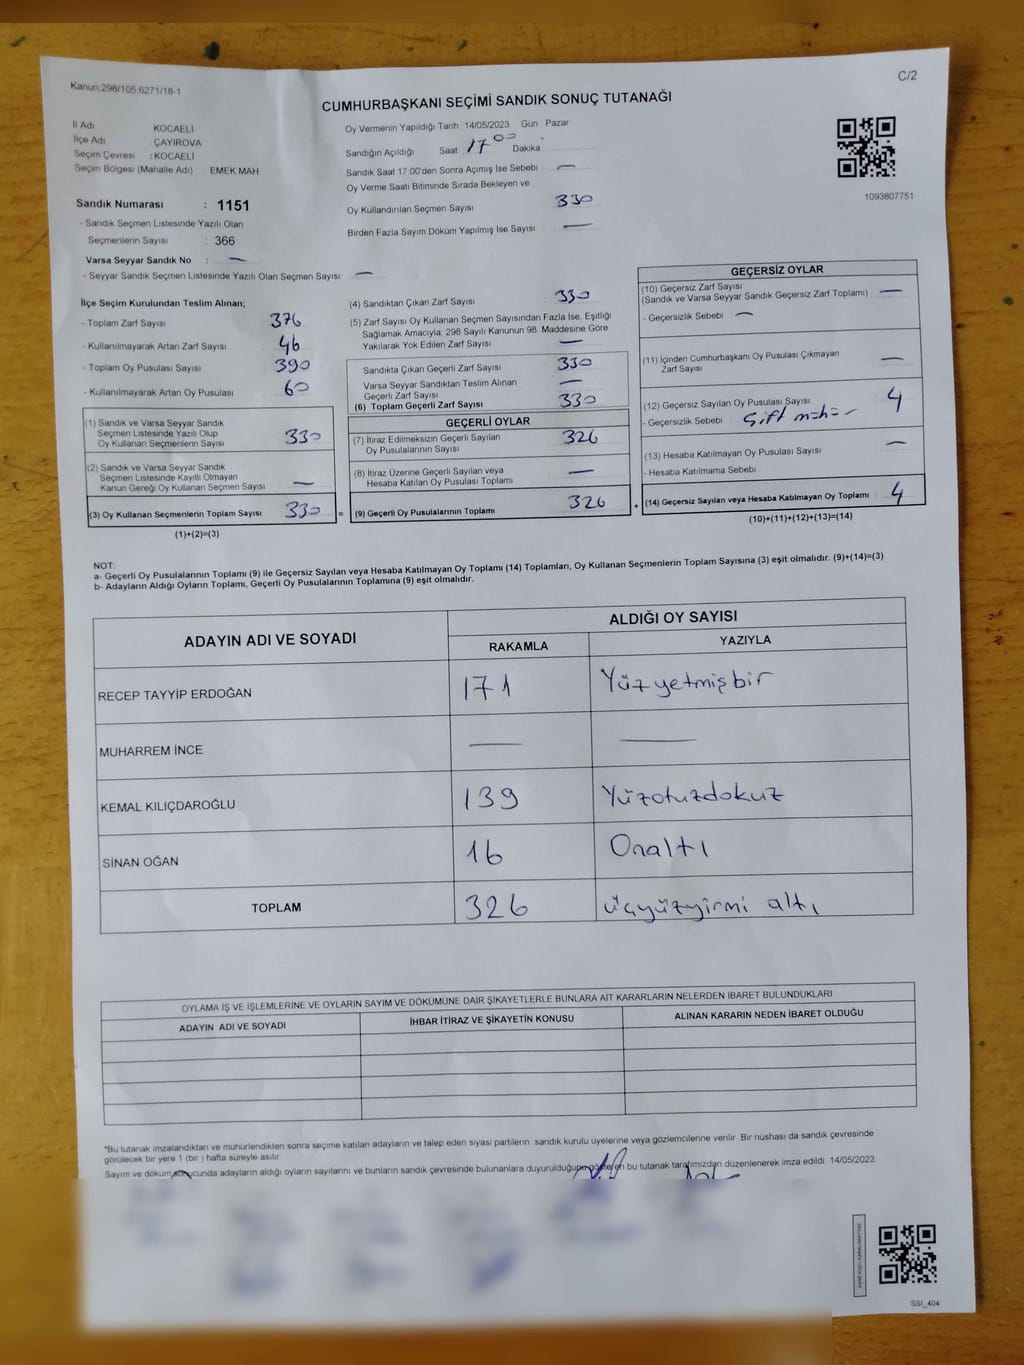 Kanun:298/105,6271/18-1
C/2
CUMHURBAŞKANI SEÇİMİ SANDIK SONUÇ TUTANAĞI
İl Adı KOCAELİ
İlçe Adı ÇAYIROVA
Seçim Çevresi : KOCAELİ
Seçim Bölgesi (Mahalle Adı) EMEK MAH
Sandık Numarası : 1151
- Sandık Seçmen Listesinde Yazılı Olan
Seçmenlerin Sayısı : 366
Varsa Seyyar Sandık No : —
- Seyyar Sandık Seçmen Listesinde Yazılı Olan Seçmen Sayısı: —
Oy Vermenin Yapıldığı Tarih 14/05/2023 Gün : Pazar
Sandığın Açıldığı Saat 17 00 Dakika
Sandık Saat 17 00'den Sonra Açımış İse Sebebi —
Oy Verme Saati Bitiminde Sırada Bekleyen ve
Oy Kullandırılan Seçmen Sayısı 330
Birden Fazla Sayım Döküm Yapılmış İse Sayısı —
1093807751
İlçe Seçim Kurulundan Teslim Alınan;
- Toplam Zarf Sayısı 376
- Kullanılmayarak Artan Zarf Sayısı 46
- Toplam Oy Pusulası Sayısı 390
- Kullanılmayarak Artan Oy Pusulası 60
(1) Sandık ve Varsa Seyyar Sandık
Seçmen Listesinde Yazılı Olup
Oy Kullanan Seçmenlerin Sayısı 330
(2) Sandık ve Varsa Seyyar Sandık
Seçmen Listesinde Kayıtlı Olmayan
Kanun Gereği Oy Kullanan Seçmen Sayısı —
(3) Oy Kullanan Seçmenlerin Toplam Sayısı 330 =
(1)+(2)=(3)
(4) Sandıktan Çıkan Zarf Sayısı 330
(5) Zarf Sayısı Oy Kullanan Seçmen Sayısından Fazla İse, Eşitliği
Sağlamak Amacıyla, 298 Sayılı Kanunun 98. Maddesine Göre
Yakılarak Yok Edilen Zarf Sayısı —
Sandıkta Çıkan Geçerli Zarf Sayısı 330
Varsa Seyyar Sandıktan Teslim Alınan
Geçerli Zarf Sayısı —
(6) Toplam Geçerli Zarf Sayısı 330
GEÇERLİ OYLAR
(7) İtiraz Edilmeksizin Geçerli Sayılan
Oy Pusulalarının Sayısı 326
(8) İtiraz Üzerine Geçerli Sayılan veya
Hesaba Katılan Oy Pusulası Toplamı —
(9) Geçerli Oy Pusulalarının Toplamı 326 +
GEÇERSİZ OYLAR
(10) Geçersiz Zarf Sayısı
(Sandık ve Varsa Seyyar Sandık Geçersiz Zarf Toplamı) —
- Geçersizlik Sebebi —
(11) İçinden Cumhurbaşkanı Oy Pusulası Çıkmayan
Zarf Sayısı —
(12) Geçersiz Sayılan Oy Pusulası Sayısı 4
- Geçersizlik Sebebi Çift mühür
(13) Hesaba Katılmayan Oy Pusulası Sayısı —
- Hesaba Katılmama Sebebi
(14) Geçersiz Sayılan veya Hesaba Katılmayan Oy Toplamı 4
(10)+(11)+(12)+(13)=(14)
NOT:
a- Geçerli Oy Pusulalarının Toplamı (9) ile Geçersiz Sayılan veya Hesaba Katılmayan Oy Toplamı (14) Toplamları, Oy Kullanan Seçmenlerin Toplam Sayısına (3) eşit olmalıdır. (9)+(14)=(3)
b- Adayların Aldığı Oyların Toplamı, Geçerli Oy Pusulalarının Toplamına (9) eşit olmalıdır.
ADAYIN ADI VE SOYADI ALDIĞI OY SAYISI
RAKAMLA YAZIYLA
RECEP TAYYİP ERDOĞAN 171 Yüzyetmişbir
MUHARREM İNCE — —
KEMAL KILIÇDAROĞLU 139 Yüzotuzdokuz
SİNAN OĞAN 16 Onaltı
TOPLAM 326 üçyüzyirmi altı
OYLAMA İŞ VE İŞLEMLERİNE VE OYLARIN SAYIM VE DÖKÜMÜNE DAİR ŞİKAYETLERLE BUNLARA AİT KARARLARIN NELERDEN İBARET BULUNDUKLARI
ADAYIN ADI VE SOYADI İHBAR İTİRAZ VE ŞİKAYETİN KONUSU ALINAN KARARIN NEDEN İBARET OLDUĞU
*Bu tutanak imzalandıktan ve mühürlendikten sonra seçime katılan adayların ve talep eden siyasi partilerin sandık kurulu üyelerine veya gözlemcilerine verilir. Bir nüshası da sandık çevresinde
görülecek bir yere 1 (bir ) hafta süreyle asılır.
Sayım ve döküm sonucunda adayların aldığı oyların sayılarını ve bunların sandık çevresinde bulunanlara duyurulduğunu gösteren bu tutanak tarafımızdan düzenlenerek imza edildi. 14/05/2023
SSİ_404